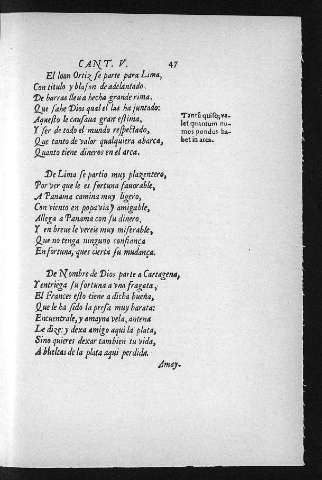 CANT. V. 47
El Ioan Ortiz se parte para Lima,
Con titulo y blason de adelantado.
De barras lleua hecha grande rima.
Que sabe Dios qual el las ha juntado:
Aquesto le causaua gran estima,
Y ser de todo el mundo respectado,
Que tanto de valor qualquiera abarca,
Quanto tiene dineros en el arca.
Tantũ quisq; va-
let quantum nu-
mos pondus ha-
bet in arca.
De Lima se partio muy plazentero,
Por ver que le es fortuna fauorable,
A Panama camina muy ligero,
Con viento en popa via y amigable,
Allega a Panama con su dinero,
Y en breue le vereis muy miserable,
Que no tenga ninguno confiança
En fortuna, ques cierta su mudança.
De Nombre de Dios parte a Cartagena,
Y entriega su fortuna a vna fragata,
El Frances esto tiene a dicha buena,
Que le ha sido la presa muy barata:
Encuentrale, y amayna vela, antena
Le dize: y dexa amigo aqui la plata,
Sino quieres dexar tambien tu vida,
A bueltas de la plata aqui perdida.
Amay-